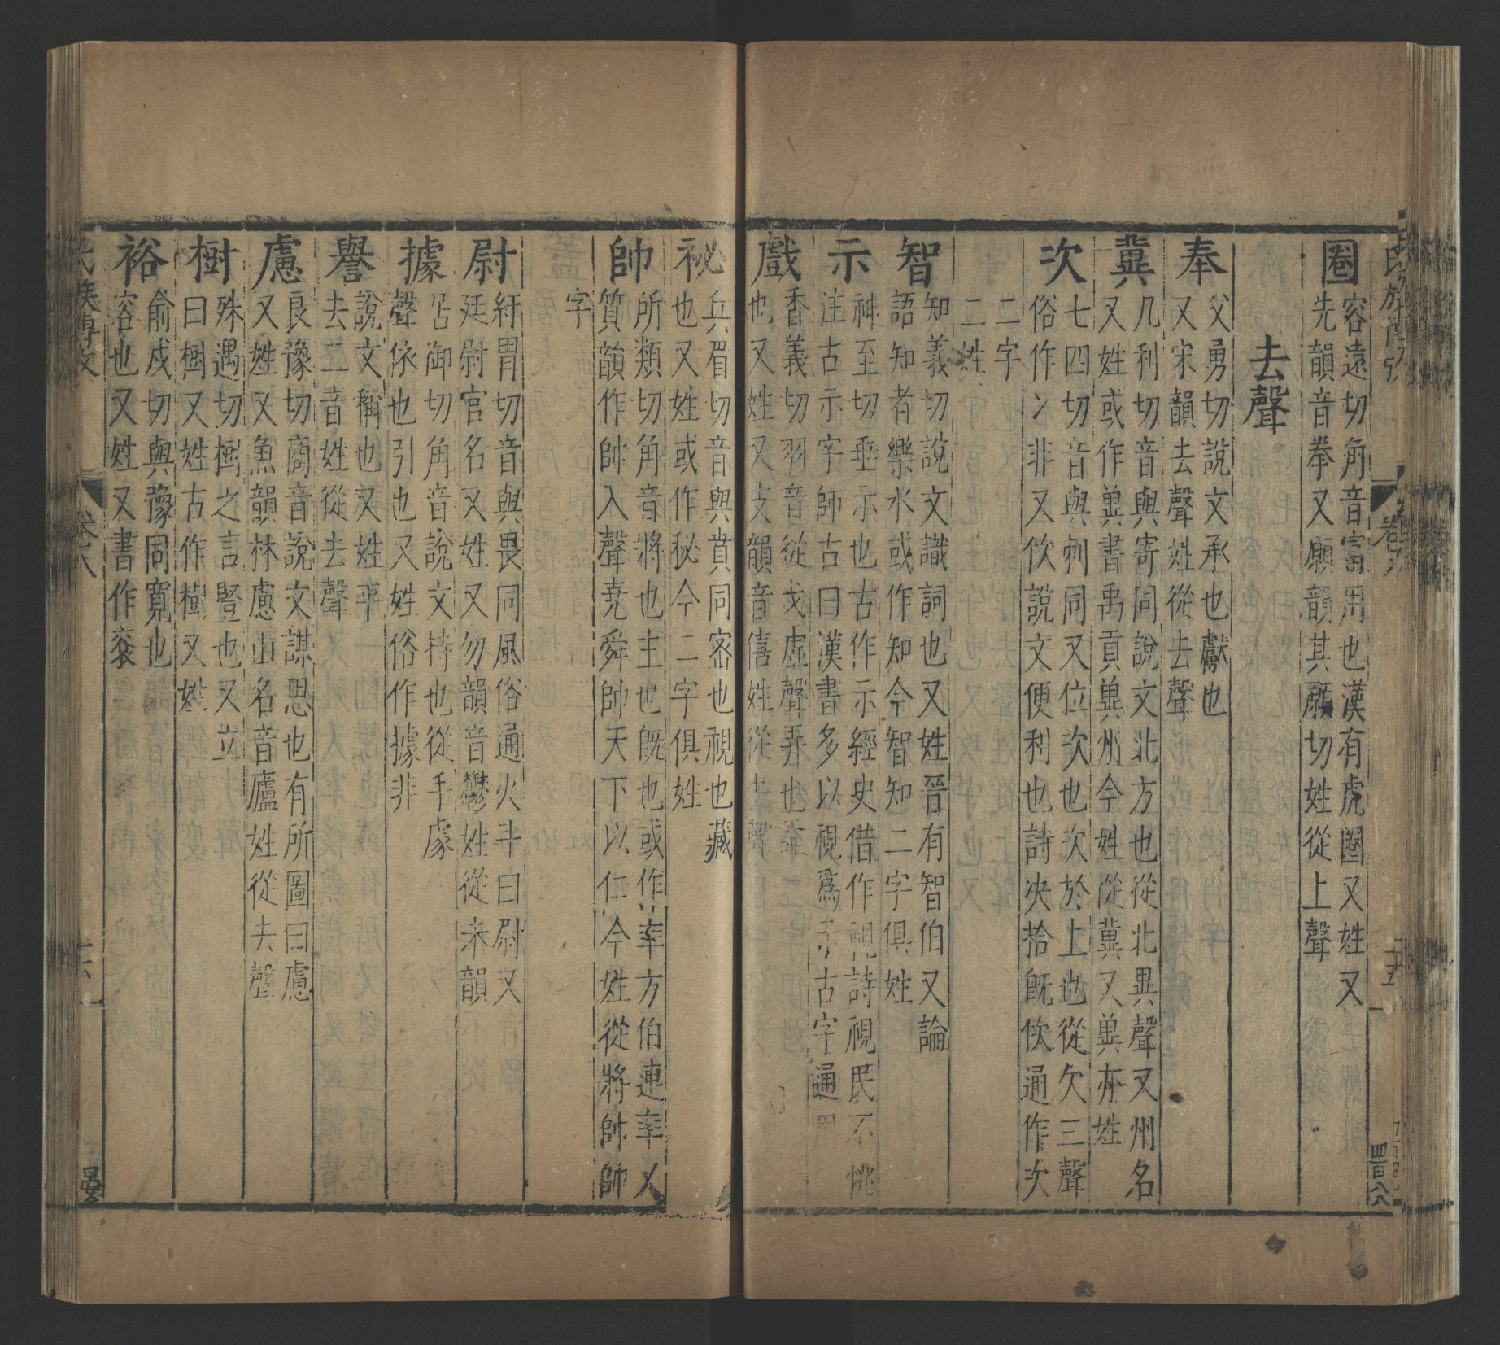 圈
容遠切角音富用也漢有虎圈又姓又
先韻音拳又願韻其願切姓從上聲
去聲
奉
父勇切說文承也獻也
又宋韻去聲姓從去聲
冀
几利切音與寄同說文北方也從北異聲又州名
又姓或作兾書禹貢兾州今姓從冀又兾亦姓
次
七四切音與刺同又位次也次於上也從欠二聲
俗作冫非又佽說文便利也詩决拾既佽通作次
二字
二姓
智
知義切說文識詞也又姓晉有智伯又論
語知者樂水或作知今智知二字俱姓
示
神至切垂示也古作示經史借作視詩視民不恌
注古示字師古曰漢書多以視為示古字通用
戲
香義切羽音從戈虛聲弄也
也又姓又支韻音僖姓從去聲
祕
兵眉切音與賁同密也視也藏
也又姓或作秘今二字俱姓
帥
所類切角音將也主也旣也或作率方伯連率又
質韻作帥入聲堯舜帥天下以仁今姓從將帥帥
字
尉
紆胃切音與畏同風俗通火斗曰尉又
廷尉官名又姓又勿韻音鬱姓從未韻
據
居御切角音說文持也從手豦
聲依也引也又姓俗作據非
譽
說文稱也又姓平
去二音姓從去聲
慮
良豫切商音說文謀思也有所圖曰慮
又姓又魚韻林慮山名音廬姓從去聲
樹
殊遇切樹之言豎也又立
曰樹又姓古作樹又姓
裕
俞戍切與豫同寬也
容也又姓又書作衮
氏族博攷
卷六